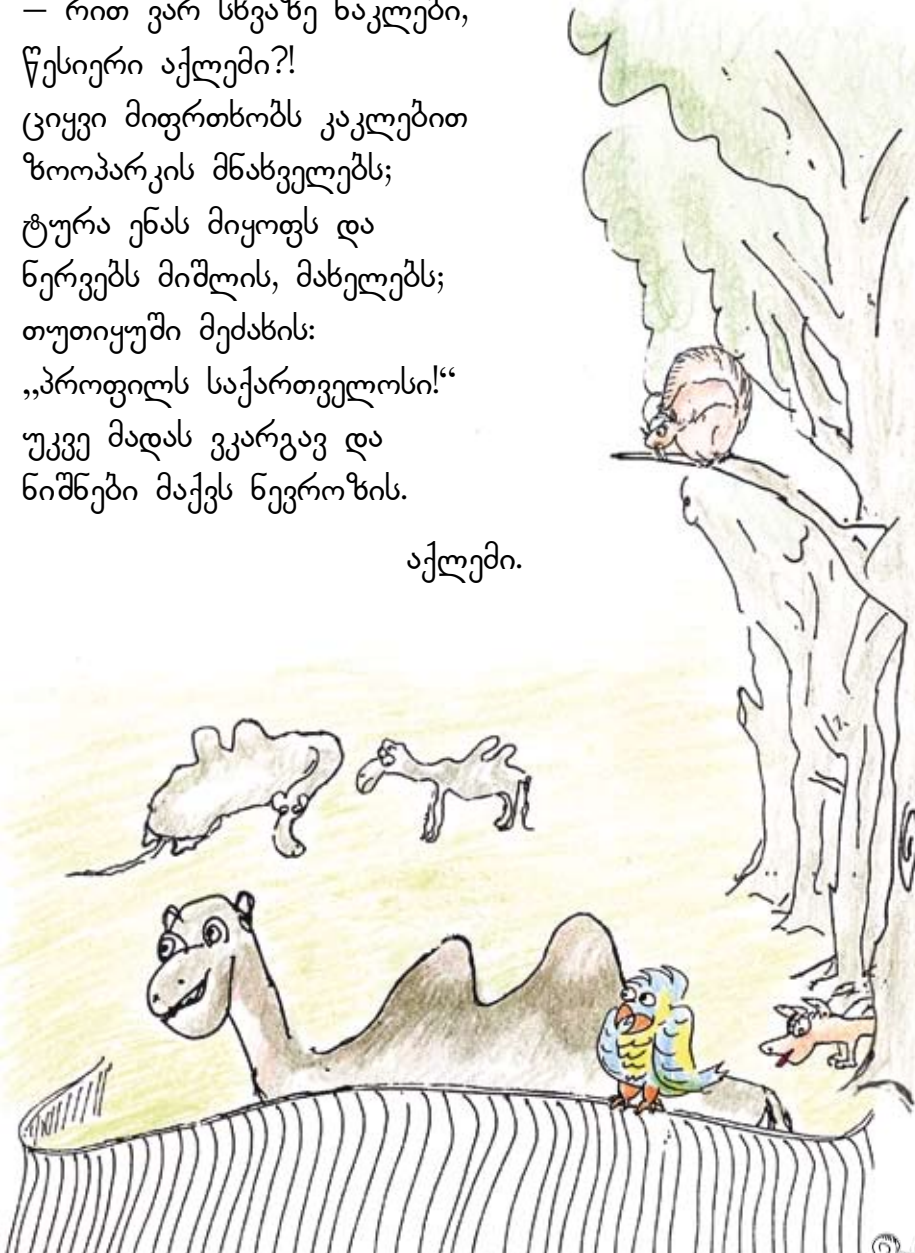 – რით ვარ სხვაზე ნაკლები,
წესიერი აქლემი?!
ციყვი მიფრთხობს კაკლებით
ზოოპარკის მნახველებს;
ტურა ენას მიყოფს და
ნერვებს მიშლის, მახელებს;
თუთიყუში მეძახის:
„პროფილს საქართველოსი!“
უკვე მადას ვკარგავ და
ნიშნები მაქვს ნევროზის.
აქლემი.